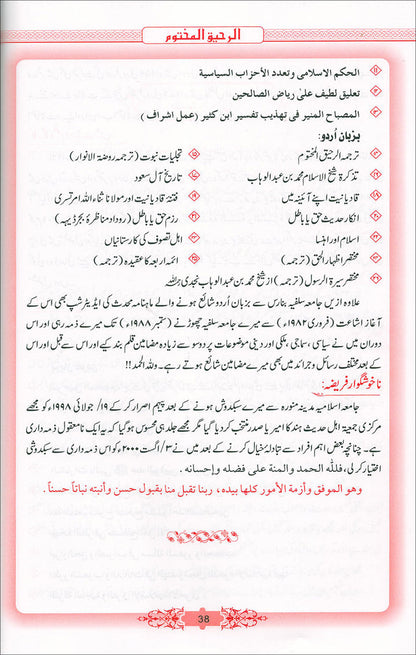 الرحيق المختوم
⑪ الحكم الاسلامى وتعدد الأحزاب السياسية
تعليق لطيف علىٰ رياض الصالحين
المصباح المنير فى تهذيب تفسير ابن كثير (عمل اشراف)
بزبان اُردو:
ترجمہ الرحیق المختوم تجلیات نبوت (ترجمہ روضۃ الانوار)
تذکرۂ شیخ الاسلام محمد بن عبدالوہاب تاریخ آل سعود
قادیانیت اپنے آئینہ میں فتنۂ قادیانیت اور مولانا ثناء اللہ امرتسری
انکار حدیث حق یا باطل رزم حق یا باطل (روداد مناظرۂ بجرڈیہہ)
اسلام اور اہنسا اہل تصوف کی کارستانیاں
مختصر اظہار الحق (ترجمہ) ائمہ اربعہ کا عقیدہ (ترجمہ)
مختصر سیرۃ الرسول (ترجمہ) از شیخ محمد بن عبدالوہاب نجدی رحمہ اللہ
علاوہ ازیں جامعہ سلفیہ بنارس سے بزبان اُردو شائع ہونے والے ماہنامہ محدث کی ایڈیٹرشپ بھی اس کے
آغاز اشاعت (فروری ۱۹۸۲ء) سے میرے جامعہ سلفیہ چھوڑنے (ستمبر ۱۹۸۸ء) تک میرے ذمہ رہی اور اس
دوران میں نے سیاسی، سماجی، ملکی اور دینی موضوعات پر دو سو سے زیادہ مضامین قلم بند کیے اور اس سے قبل اور اس
کے بعد مختلف رسائل و جرائد میں بھی میرے مضامین شائع ہوتے رہے۔ وللہ الحمد!!
ناخوشگوار فریضہ:
جامعہ اسلامیہ مدینہ منورہ سے میرے سبکدوش ہونے کے بعد پیہم اصرار کر کے ۱۹/ جولائی ۱۹۹۸ء کو مجھے
مرکزی جمعیۃ اہل حدیث ہند کا امیر یا صدر منتخب کر دیا گیا مگر مجھے جلد ہی محسوس ہو گیا کہ یہ ایک نامعقول ذمہ داری
ہے۔ چنانچہ بعض اہم افراد سے تبادلۂ خیال کرنے کے بعد میں نے ۳/ اگست ۲۰۰۰ء کو اس ذمہ داری سے سبکدوشی
اختیار کر لی۔ فللّٰه الحمد والمنة على فضله وإحسانه.
وهو الموفق وأزمة الأمور كلها بيده، ربنا تقبل منا بقبول حسن وأنبته نباتاً حسناً.
38